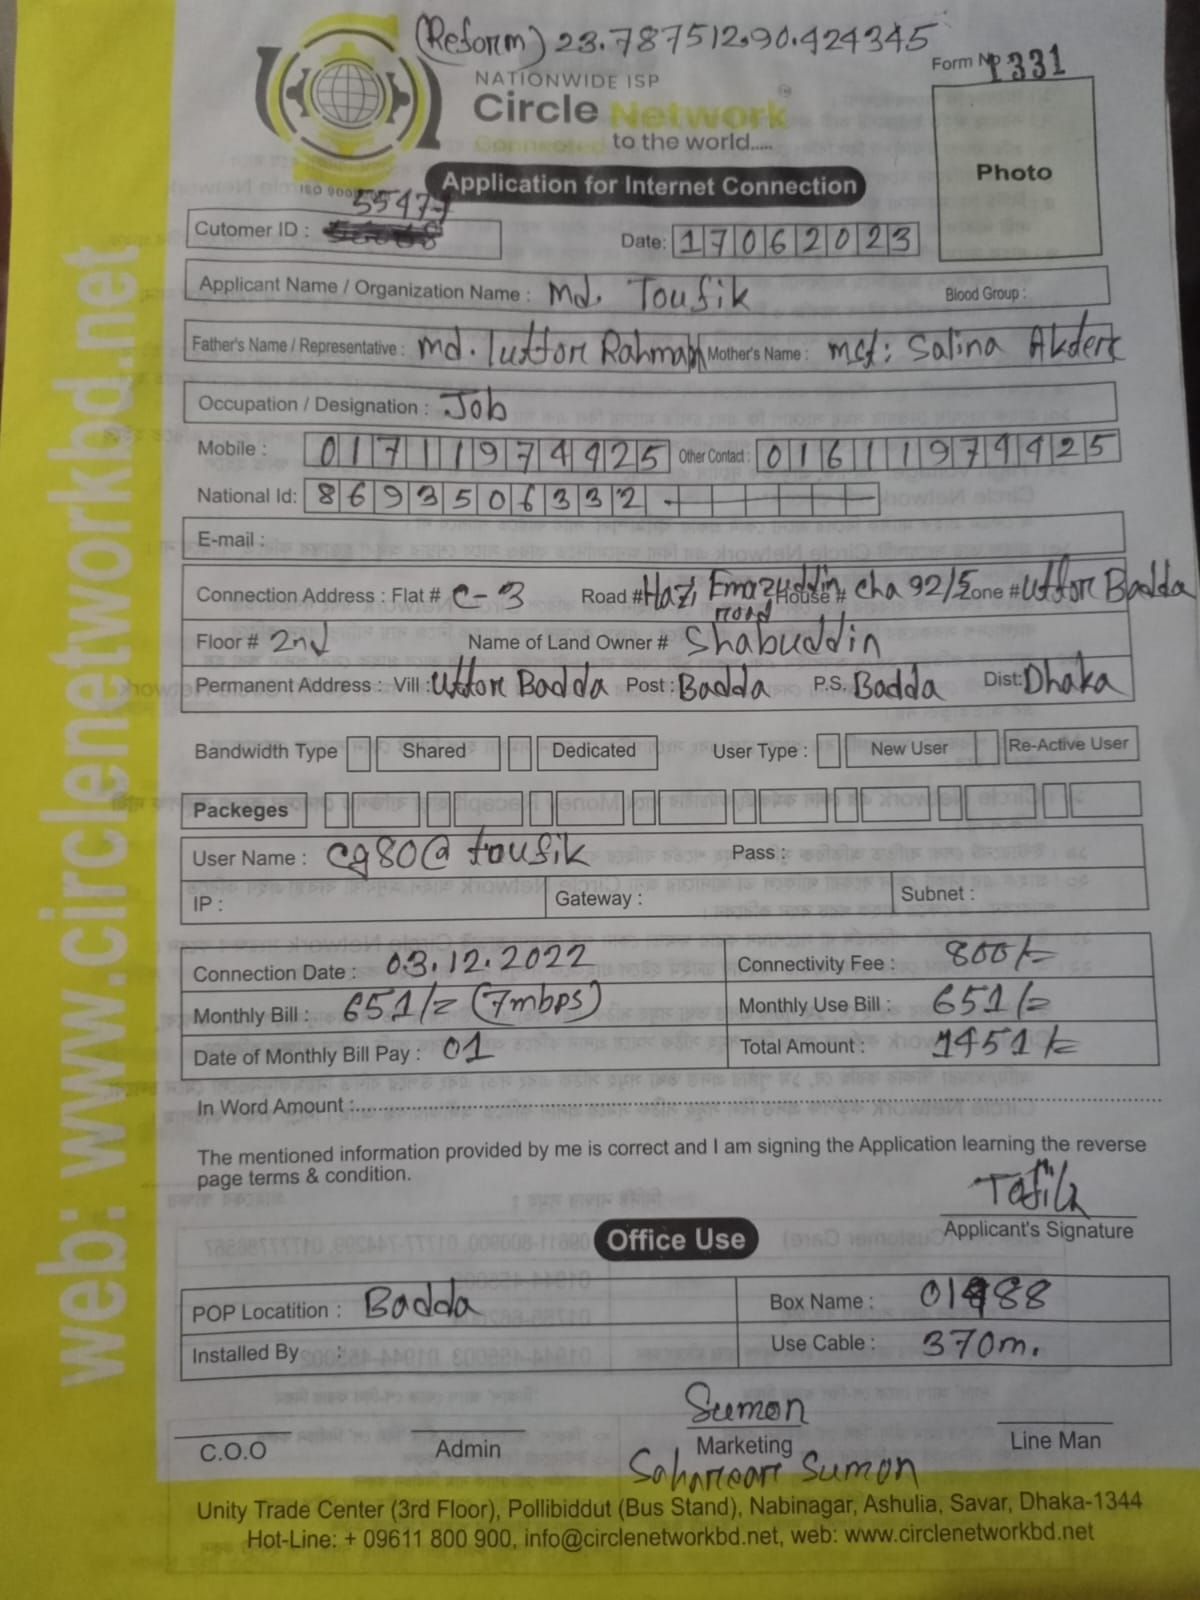 (Reform) 23.787512,90.424345
Form No 1331
NATIONWIDE ISP
Circle Network
Connected to the world.....
Photo
Application for Internet Connection
55477
Cutomer ID :
Date: 17062023
Applicant Name / Organization Name : Md. Toufik Blood Group :
Father's Name / Representative : md. luttor Rahman Mother's Name : mst: Salina Akder
Occupation / Designation : Job
Mobile : 01711974425 Other Contact : 01611974425
National Id: 8693506332
E-mail :
Connection Address : Flat # C-3 Road # Hazi Emazuddin road House # cha 92/5 Zone # Uttor Badda
Floor # 2nd Name of Land Owner # Shabuddin
Permanent Address : Vill : Uttor Badda Post : Badda P.S. Badda Dist: Dhaka
Bandwidth Type Shared Dedicated User Type : New User Re-Active User
Packeges
User Name : cg80@toufik Pass :
IP : Gateway : Subnet :
Connection Date : 03.12.2022 Connectivity Fee : 800/=
Monthly Bill : 651/= (7mbps) Monthly Use Bill : 651/=
Date of Monthly Bill Pay : 01 Total Amount : 1451/=
In Word Amount :
The mentioned information provided by me is correct and I am signing the Application learning the reverse
page terms & condition.
Tofik
Applicant's Signature
Office Use
POP Locatition : Badda Box Name : 01488
Installed By : Use Cable : 370m.
Sumon
C.O.O Admin Marketing Line Man
Sumon
Unity Trade Center (3rd Floor), Pollibiddut (Bus Stand), Nabinagar, Ashulia, Savar, Dhaka-1344
Hot-Line: + 09611 800 900, info@circlenetworkbd.net, web: www.circlenetworkbd.net
web: www.circlenetworkbd.net